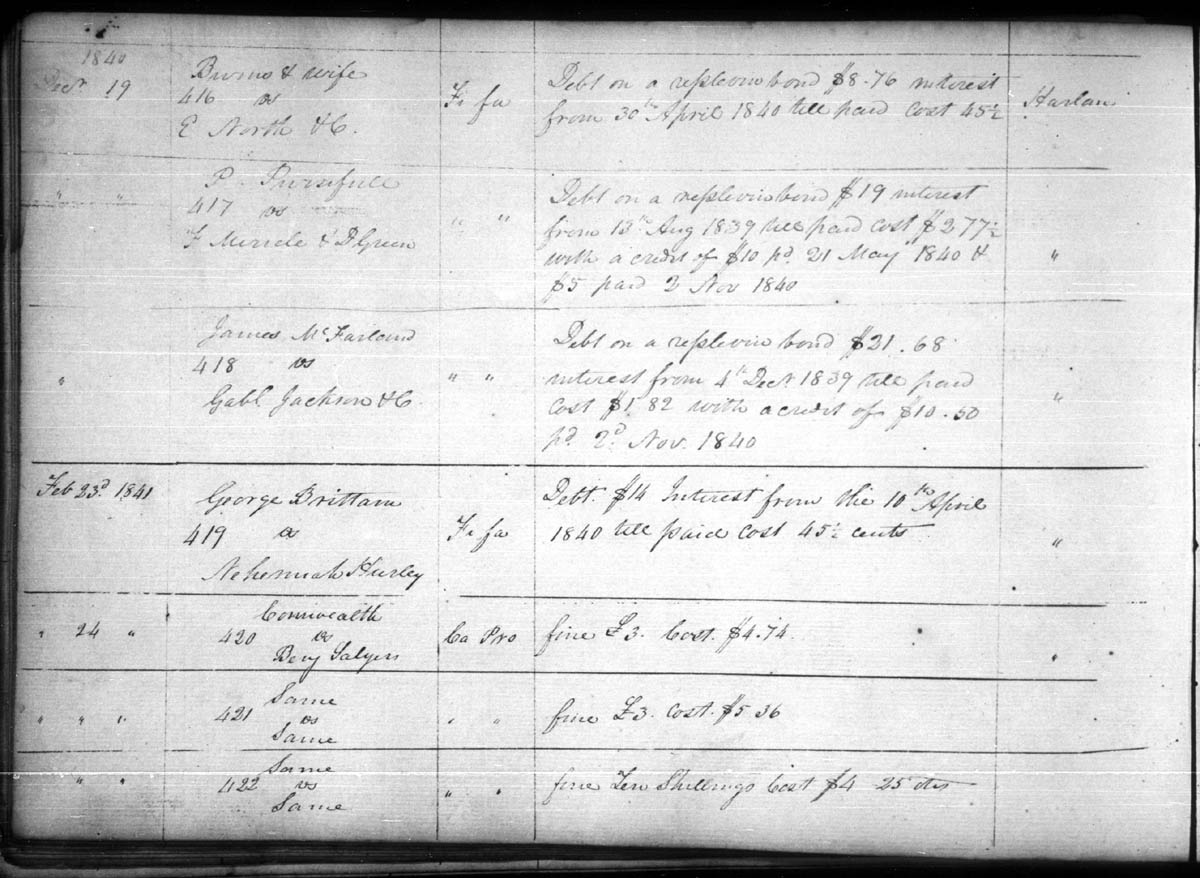 1840
Decr 19
Burns & wife
416 vs
E North &C.
Fi fa
Debt on a replevin bond $8.76 interest
from 30th April 1840 till paid cost 45½
Harlan
" "
P. Pursifull
417 vs
F Miricle & D Green
" "
Debt on a replevin bond $19 interest
from 13th Aug 1839 till paid cost $2 77½
with a credit of $10 pd. 21 May 1840 &
$5 paid 2 Nov 1840
"
"
James McFarland
418 vs
Gabl. Jackson &C.
" "
Debt on a replevin bond $21.68
interest from 4th Decr 1839 till paid
cost $1 82 with a credit of $10.50
pd. 2d. Nov. 1840
"
Feb 23d 1841
George Brittain
419 vs
Nehemiah Hurley
Fi fa
Debt $14 Interest from the 10th April
1840 till paid cost 45½ cents
"
" 24 "
Comwealth
420 vs
Benj Salyers
Ca Pro
fine £3. Cost. $4.74.
"
" " "
Same
421 vs
Same
" "
fine £3. cost. $5 36
" "
Same
422 vs
Same
" "
fine Ten Shillings Cost $4 25 cts